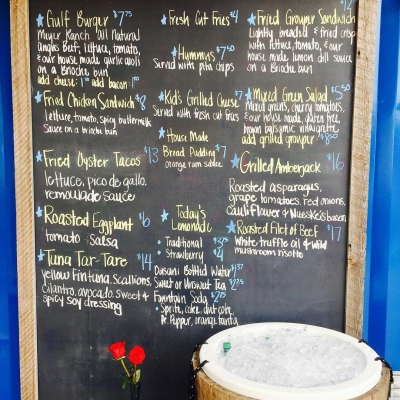 Gulf Burger $7.75
Meyer Ranch all Natural
Angus Beef, lettuce, tomato,
& our house made garlic aioli
on a Brioche bun
add cheese: 1.00 add bacon: 1.00
Fried Chicken Sandwich $8
lettuce, tomato, spicy buttermilk
Sauce on a brioche bun
Fried Oyster Tacos $13
lettuce, pico de gallo,
remoulade sauce
Roasted Eggplant $6
tomato salsa
Tuna Tar-Tare $14
yellow fin tuna, scallions,
cilantro, avocado, sweet &
spicy soy dressing
Fresh Cut Fries $4
Hummus $7.50
Served with pita chips
Kid's Grilled Cheese $7
Served with fresh cut fries
House Made
Bread Pudding $7
orange rum sauce
Today's
Lemonade
Traditional
Strawberry $4
Dasani Bottled Water
Sweet or Unsweet Tea
Fountain Soda
Sprite, coke, diet coke,
Dr. Pepper, orange fanta
Fried Grouper Sandwich
Lightly breaded & fried crisp
with lettuce, tomato, & our
house made lemon dill sauce
on a Brioche bun
Mixed Green Salad
Mixed greens, cherry tomatoes,
& our house made, gluten free,
brown balsamic vinaigrette
add grilled grouper
Grilled Amberjack $16
Roasted asparagus,
grape tomatoes, red onions,
Cauliflower & Nueske's bacon
Roasted Filet of Beef $17
White truffle oil & wild
mushroom risotto